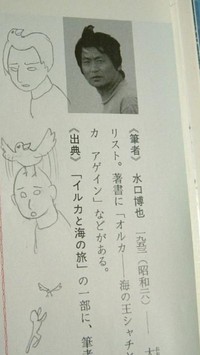 《筆者》 水口博也 一九五三(昭和二八)――大
リスト。著書に「オルカ――海の王シャチと
カ アゲイン」などがある。
《出典》 「イルカと海の旅」の一部に、筆者